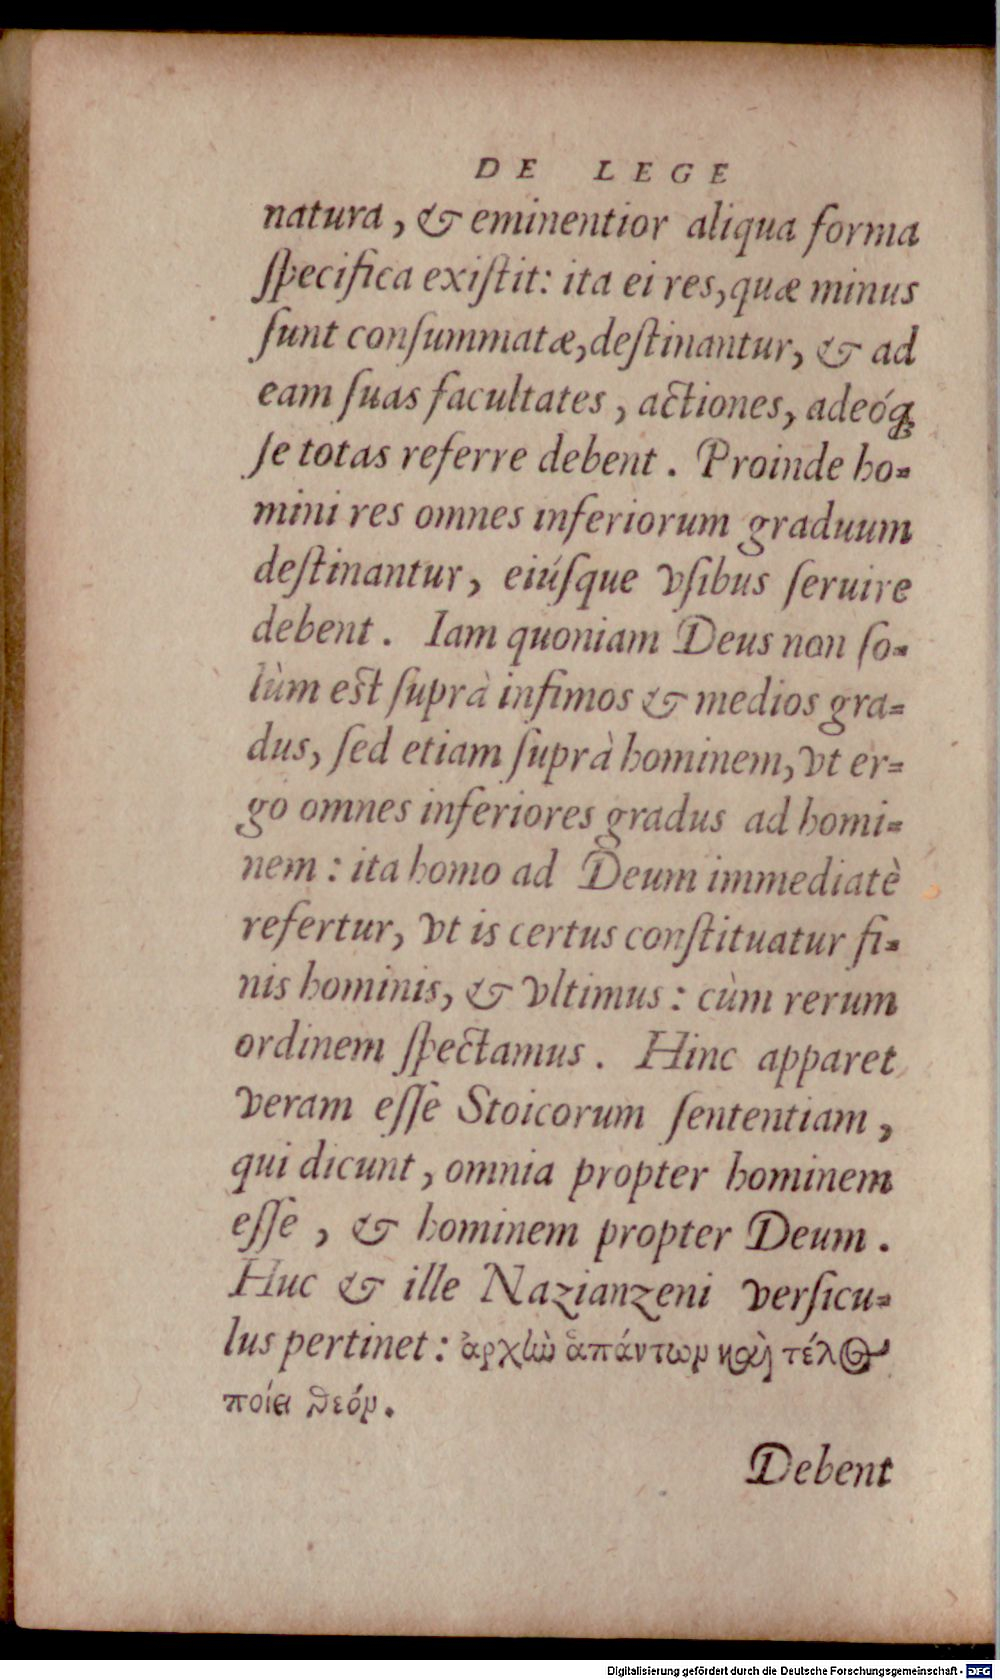 DE LEGE
natura, & eminentior aliqua forma
ſpecifica exiſtit: ita ei res, quæ minus
ſunt conſummatæ, deſtinantur, & ad
eam ſuas facultates, actiones, adeóq;
ſe totas referre debent. Proinde ho-
mini res omnes inferiorum graduum
deſtinantur, eiúſque vſibus ſeruire
debent. Iam quoniam Deus non ſo-
lùm est ſuprà infimos & medios gra-
dus, ſed etiam ſuprà hominem, vt er-
go omnes inferiores gradus ad homi-
nem: ita homo ad Deum immediatè
refertur, vt is certus conſtituatur fi-
nis hominis, & vltimus: cùm rerum
ordinem ſpectamus. Hinc apparet
veram eſſe Stoicorum ſententiam,
qui dicunt, omnia propter hominem
eſſe, & hominem propter Deum.
Huc & ille Nazianzeni verſicu-
lus pertinet: ἀρχὴν ἁπάντων καὶ τέλος
ποίει θεόν.
Debent
Digitalisierung gefördert durch die Deutsche Forschungsgemeinschaft - DFG